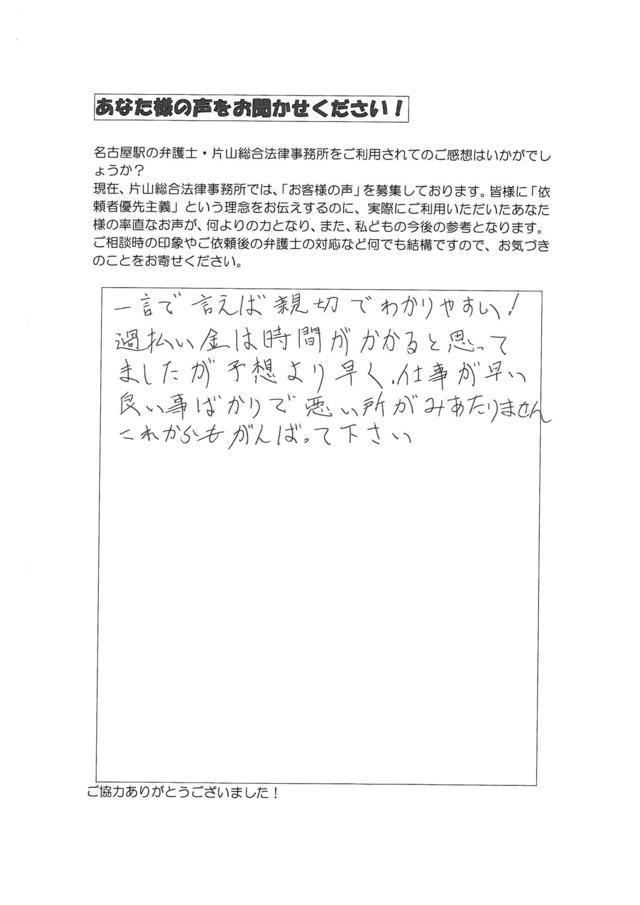 あなた様の声をお聞かせください！
名古屋駅の弁護士・片山総合法律事務所をご利用されてのご感想はいかがでし
ょうか？
現在、片山総合法律事務所では、「お客様の声」を募集しております。皆様に「依
頼者優先主義」という理念をお伝えするのに、実際にご利用いただいたあなた
様の率直なお声が、何よりの力となり、また、私どもの今後の参考となります。
ご相談時の印象やご依頼後の弁護士の対応など何でも結構ですので、お気づき
のことをお寄せください。
一言で言えば親切でわかりやすい！
過払い金は時間がかかると思って
ましたが予想より早く、仕事が早い
良い事ばかりで悪い所がみあたりません
これからもがんばって下さい
ご協力ありがとうございました！